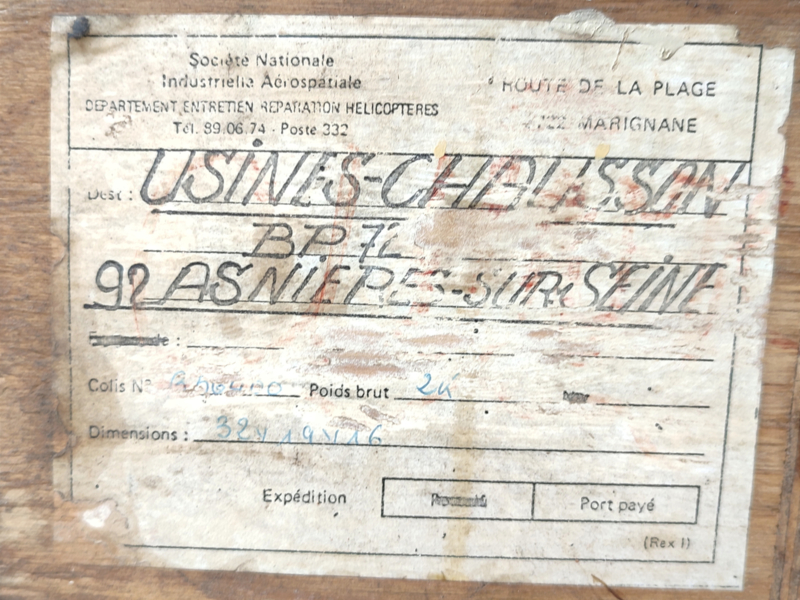 Société Nationale
Industrielle Aérospatiale
DEPARTEMENT ENTRETIEN REPARATION HELICOPTERES
Tél. 89.06.74 - Poste 332
ROUTE DE LA PLAGE
MARIGNANE
Dest : USINES-CHAUSSON
BP
92 ASNIERES-SUR-SEINE
Colis N° Poids brut
Dimensions : 32 x 19 x 16
Expédition
Port payé
(Rex I)